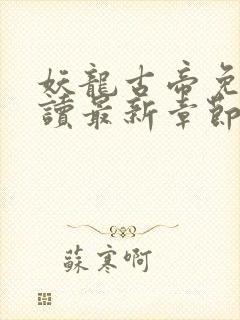 妖龍古帝免
讀最新章節
蘇寒啊